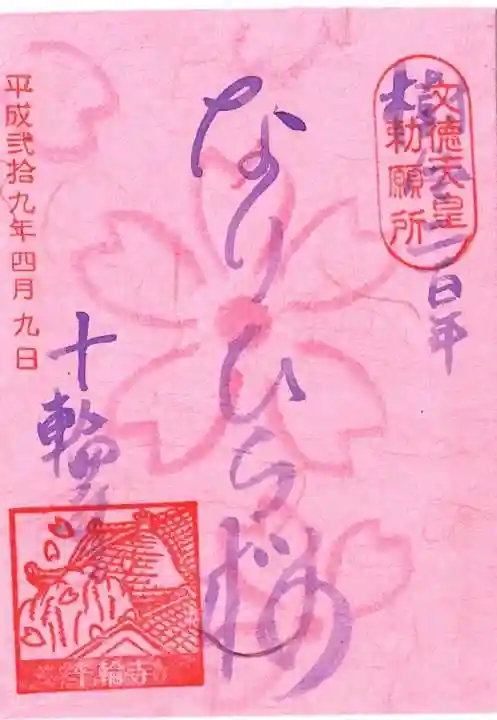 文徳天皇
勅願所
樹伝二百年
なりひら桜
十輪寺
平成弐拾九年四月九日
十輪寺